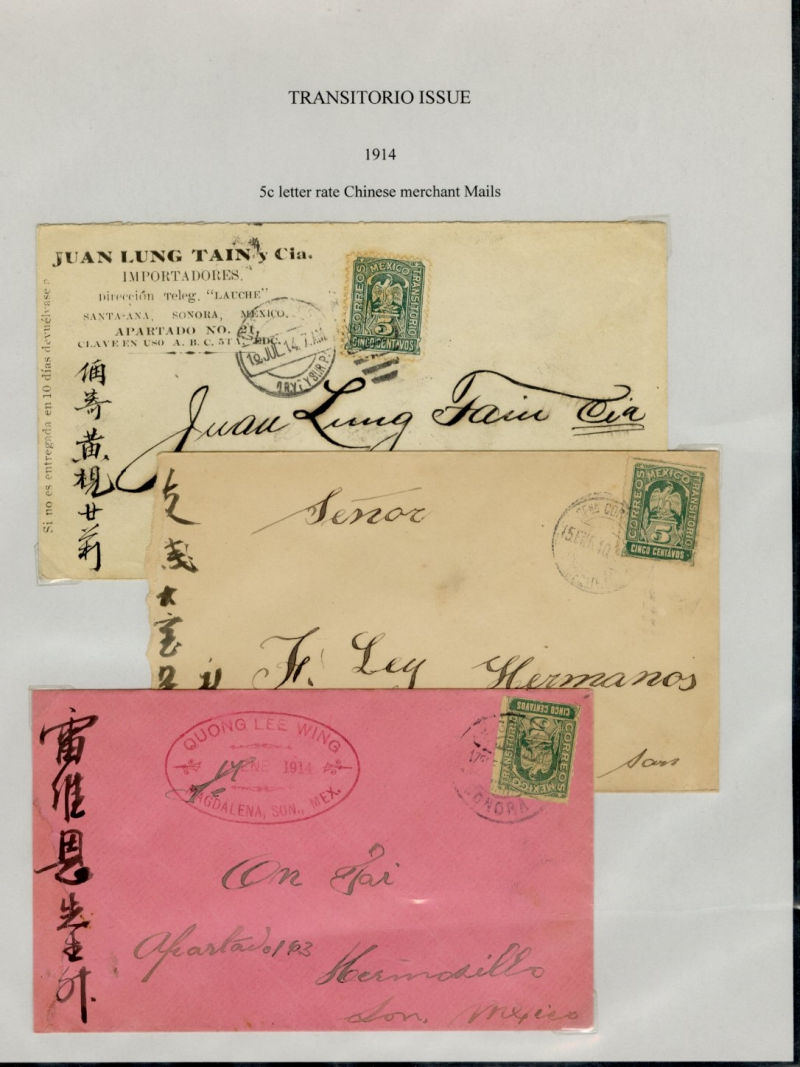 TRANSITORIO ISSUE
1914
5c letter rate Chinese merchant Mails
JUAN LUNG TAIN y Cia.
IMPORTADORES.
Dirección Teleg. "LAUCHE"
SANTA-ANA, SONORA, MEXICO.
APARTADO NO. 21.
CLAVE EN USO A. B. C. 5T EDC.
Si no es entregada en 10 días devuélvase
CORREOS MEXICO TRANSITORIO
5
CINCO CENTAVOS
12 JUL 14. 7. AM
Juan Lung Tain Cia
Señor
CORREOS MEXICO TRANSITORIO
5
CINCO CENTAVOS
F. Ley Hermanos
San
QUONG LEE WING
ENE 1914
MAGDALENA, SON., MEX.
CORREOS MEXICO TRANSITORIO
5
CINCO CENTAVOS
SONORA
雷維恩先生升
On Tai
Apartado 193
Hermosillo
Son. Mexico